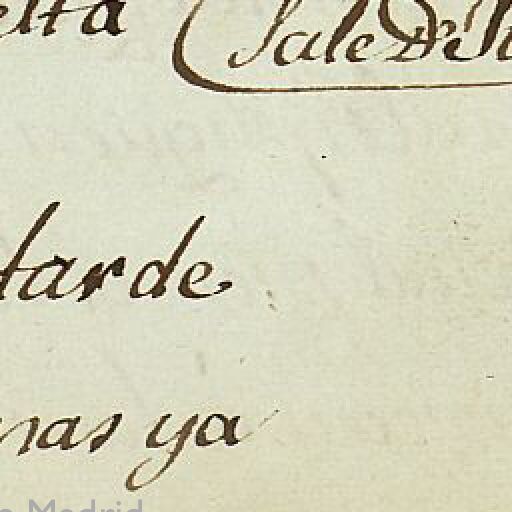 elta Sale Dn. Ju
tarde
nas ya
Madrid